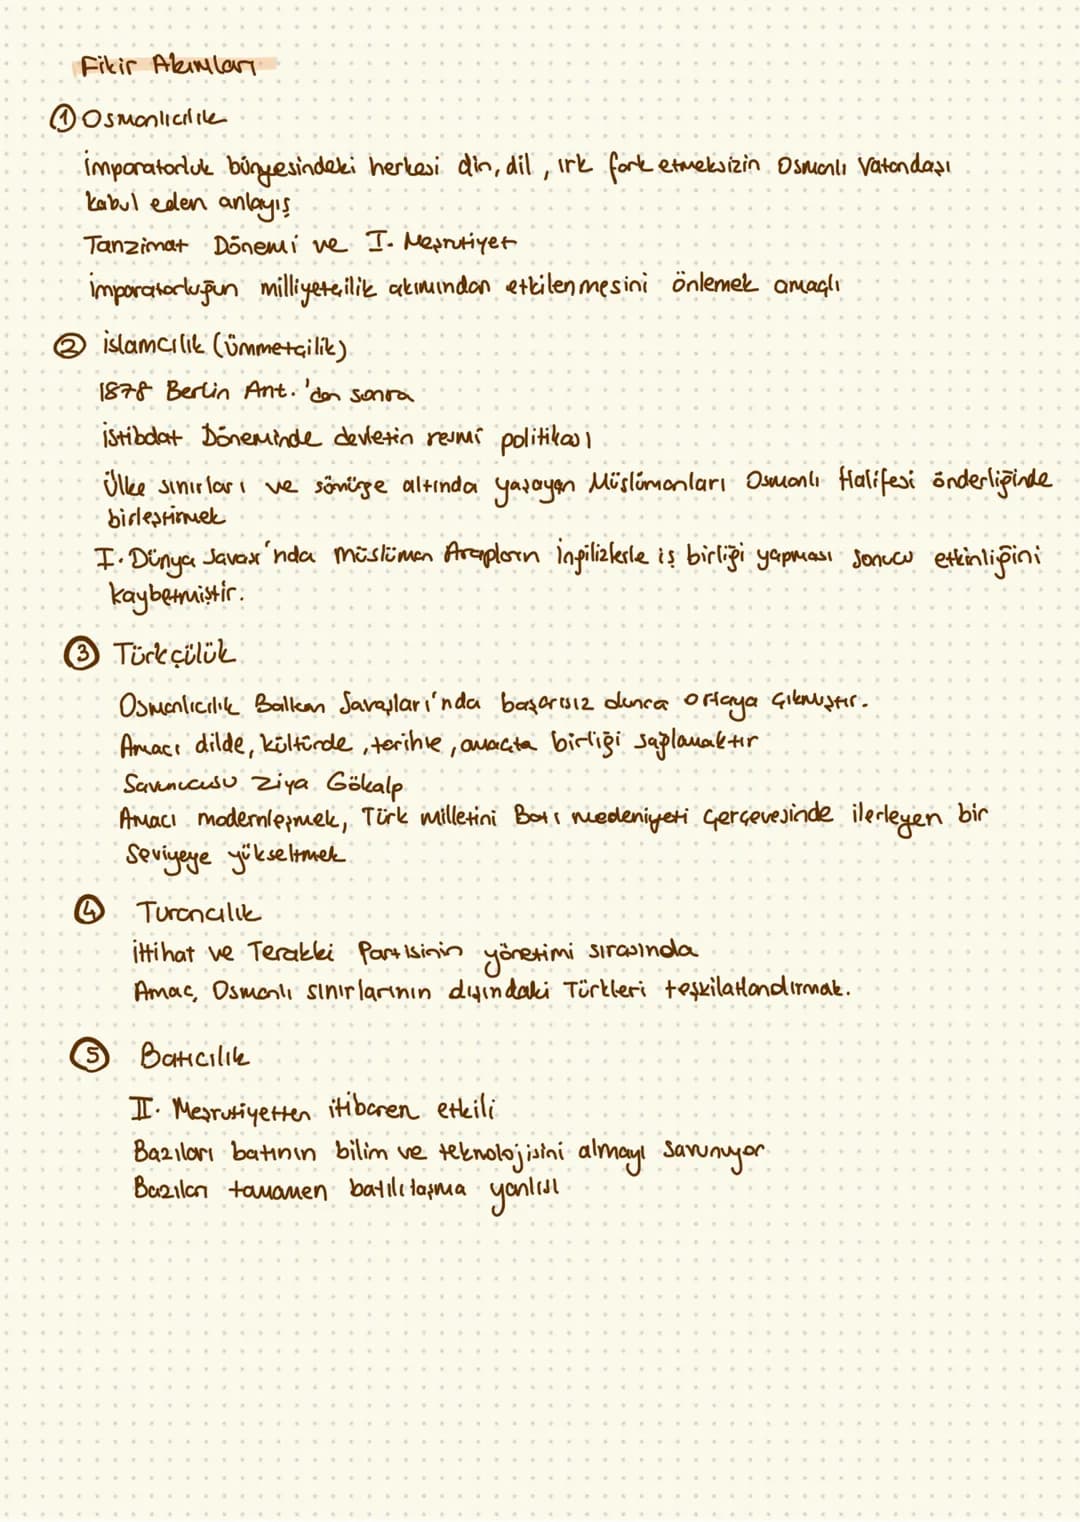 Fikir Akımları
① Osmanlıcılık
İmparatorluk bünyesindeki herkesi din, dil, ırk fark etmeksizin Osmanlı Vatandaşı
kabul eden anlayış
Tanzimat Dönemi ve I. Meşrutiyet
İmparatorluğun milliyetçilik akımından etkilenmesini önlemek amaçlı
② İslamcılık (Ümmetçilik)
1878 Berlin Ant.'dan sonra
İstibdat Döneminde devletin resmi politikası
Ülke sınırları ve sömürge altında yaşayan Müslümanları Osmanlı Halifesi önderliğinde
birleştirmek
I. Dünya Savaşı'nda müslüman Arapların İngilizlerle iş birliği yapması sonucu etkinliğini
kaybetmiştir.
③ Türkçülük
Osmanlıcılık Balkan Savaşları'nda başarısız olunca ortaya çıkmıştır.
Amacı dilde, kültürde, tarihte, amaçta birliği sağlamaktır
Savunucusu Ziya Gökalp
Amacı modernleşmek, Türk milletini Batı medeniyeti çerçevesinde ilerleyen bir
seviyeye yükseltmek
④ Turancılık
İttihat ve Terakki Partisinin yönetimi sırasında
Amaç, Osmanlı sınırlarının dışındaki Türkleri teşkilatlandırmak.
⑤ Batıcılık
II. Meşrutiyetten itibaren etkili
Bazıları batının bilim ve teknolojisini almayı savunuyor
Bazıları tamamen batılılaşma yanlısı